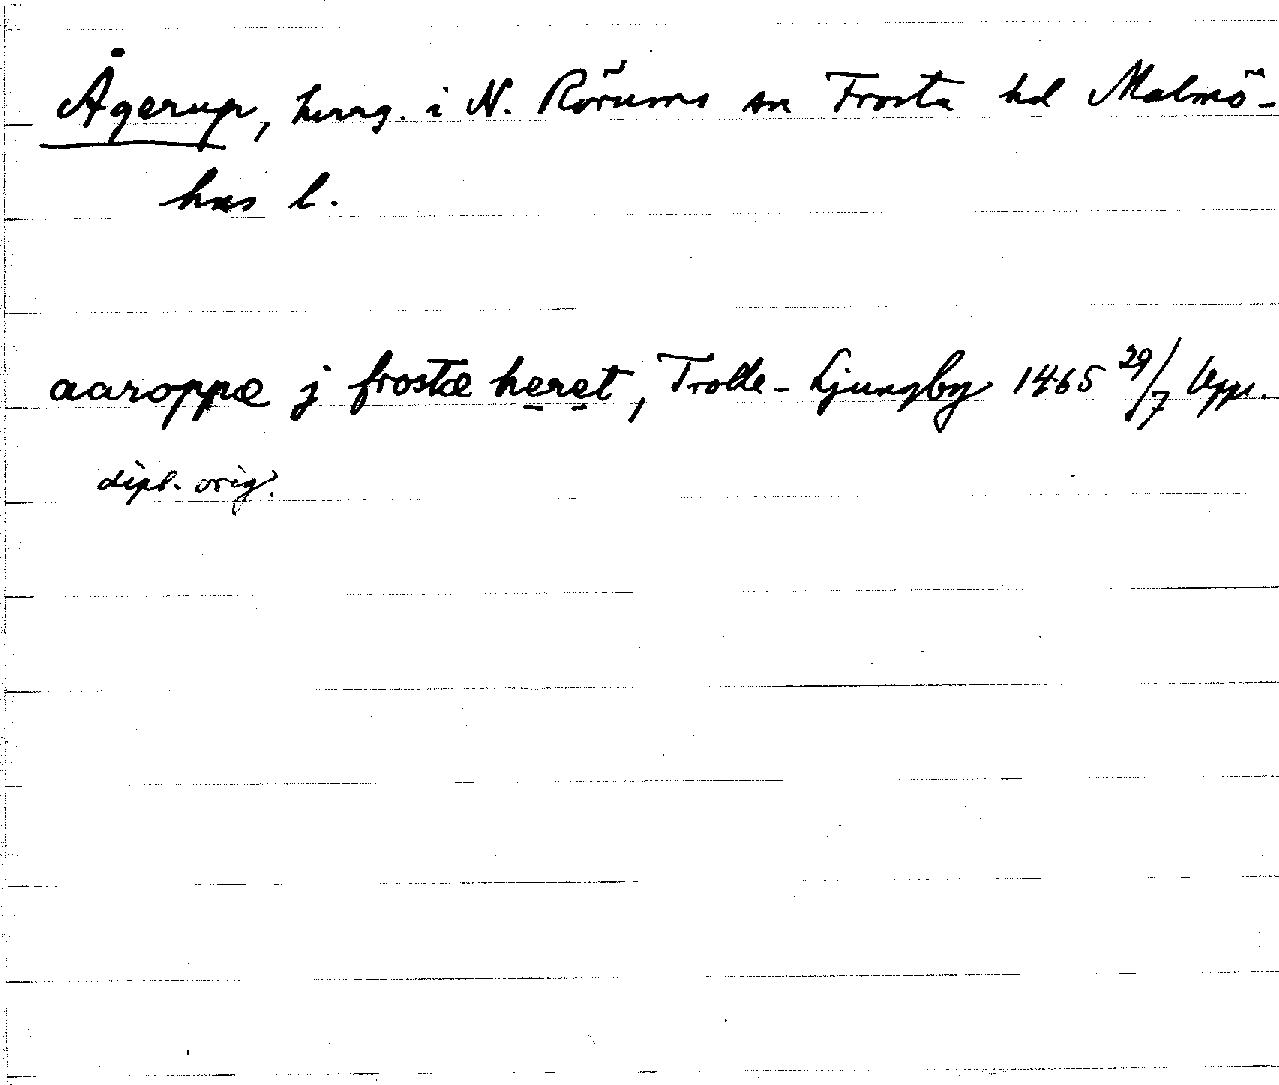 Ågerup, herrg. i N. Rörums sn Frosta hd Malmö-
hus l.
aaroppæ j frostæ heret, Trolle-Ljungby 1465 29/7 Upps.
dipl. orig.